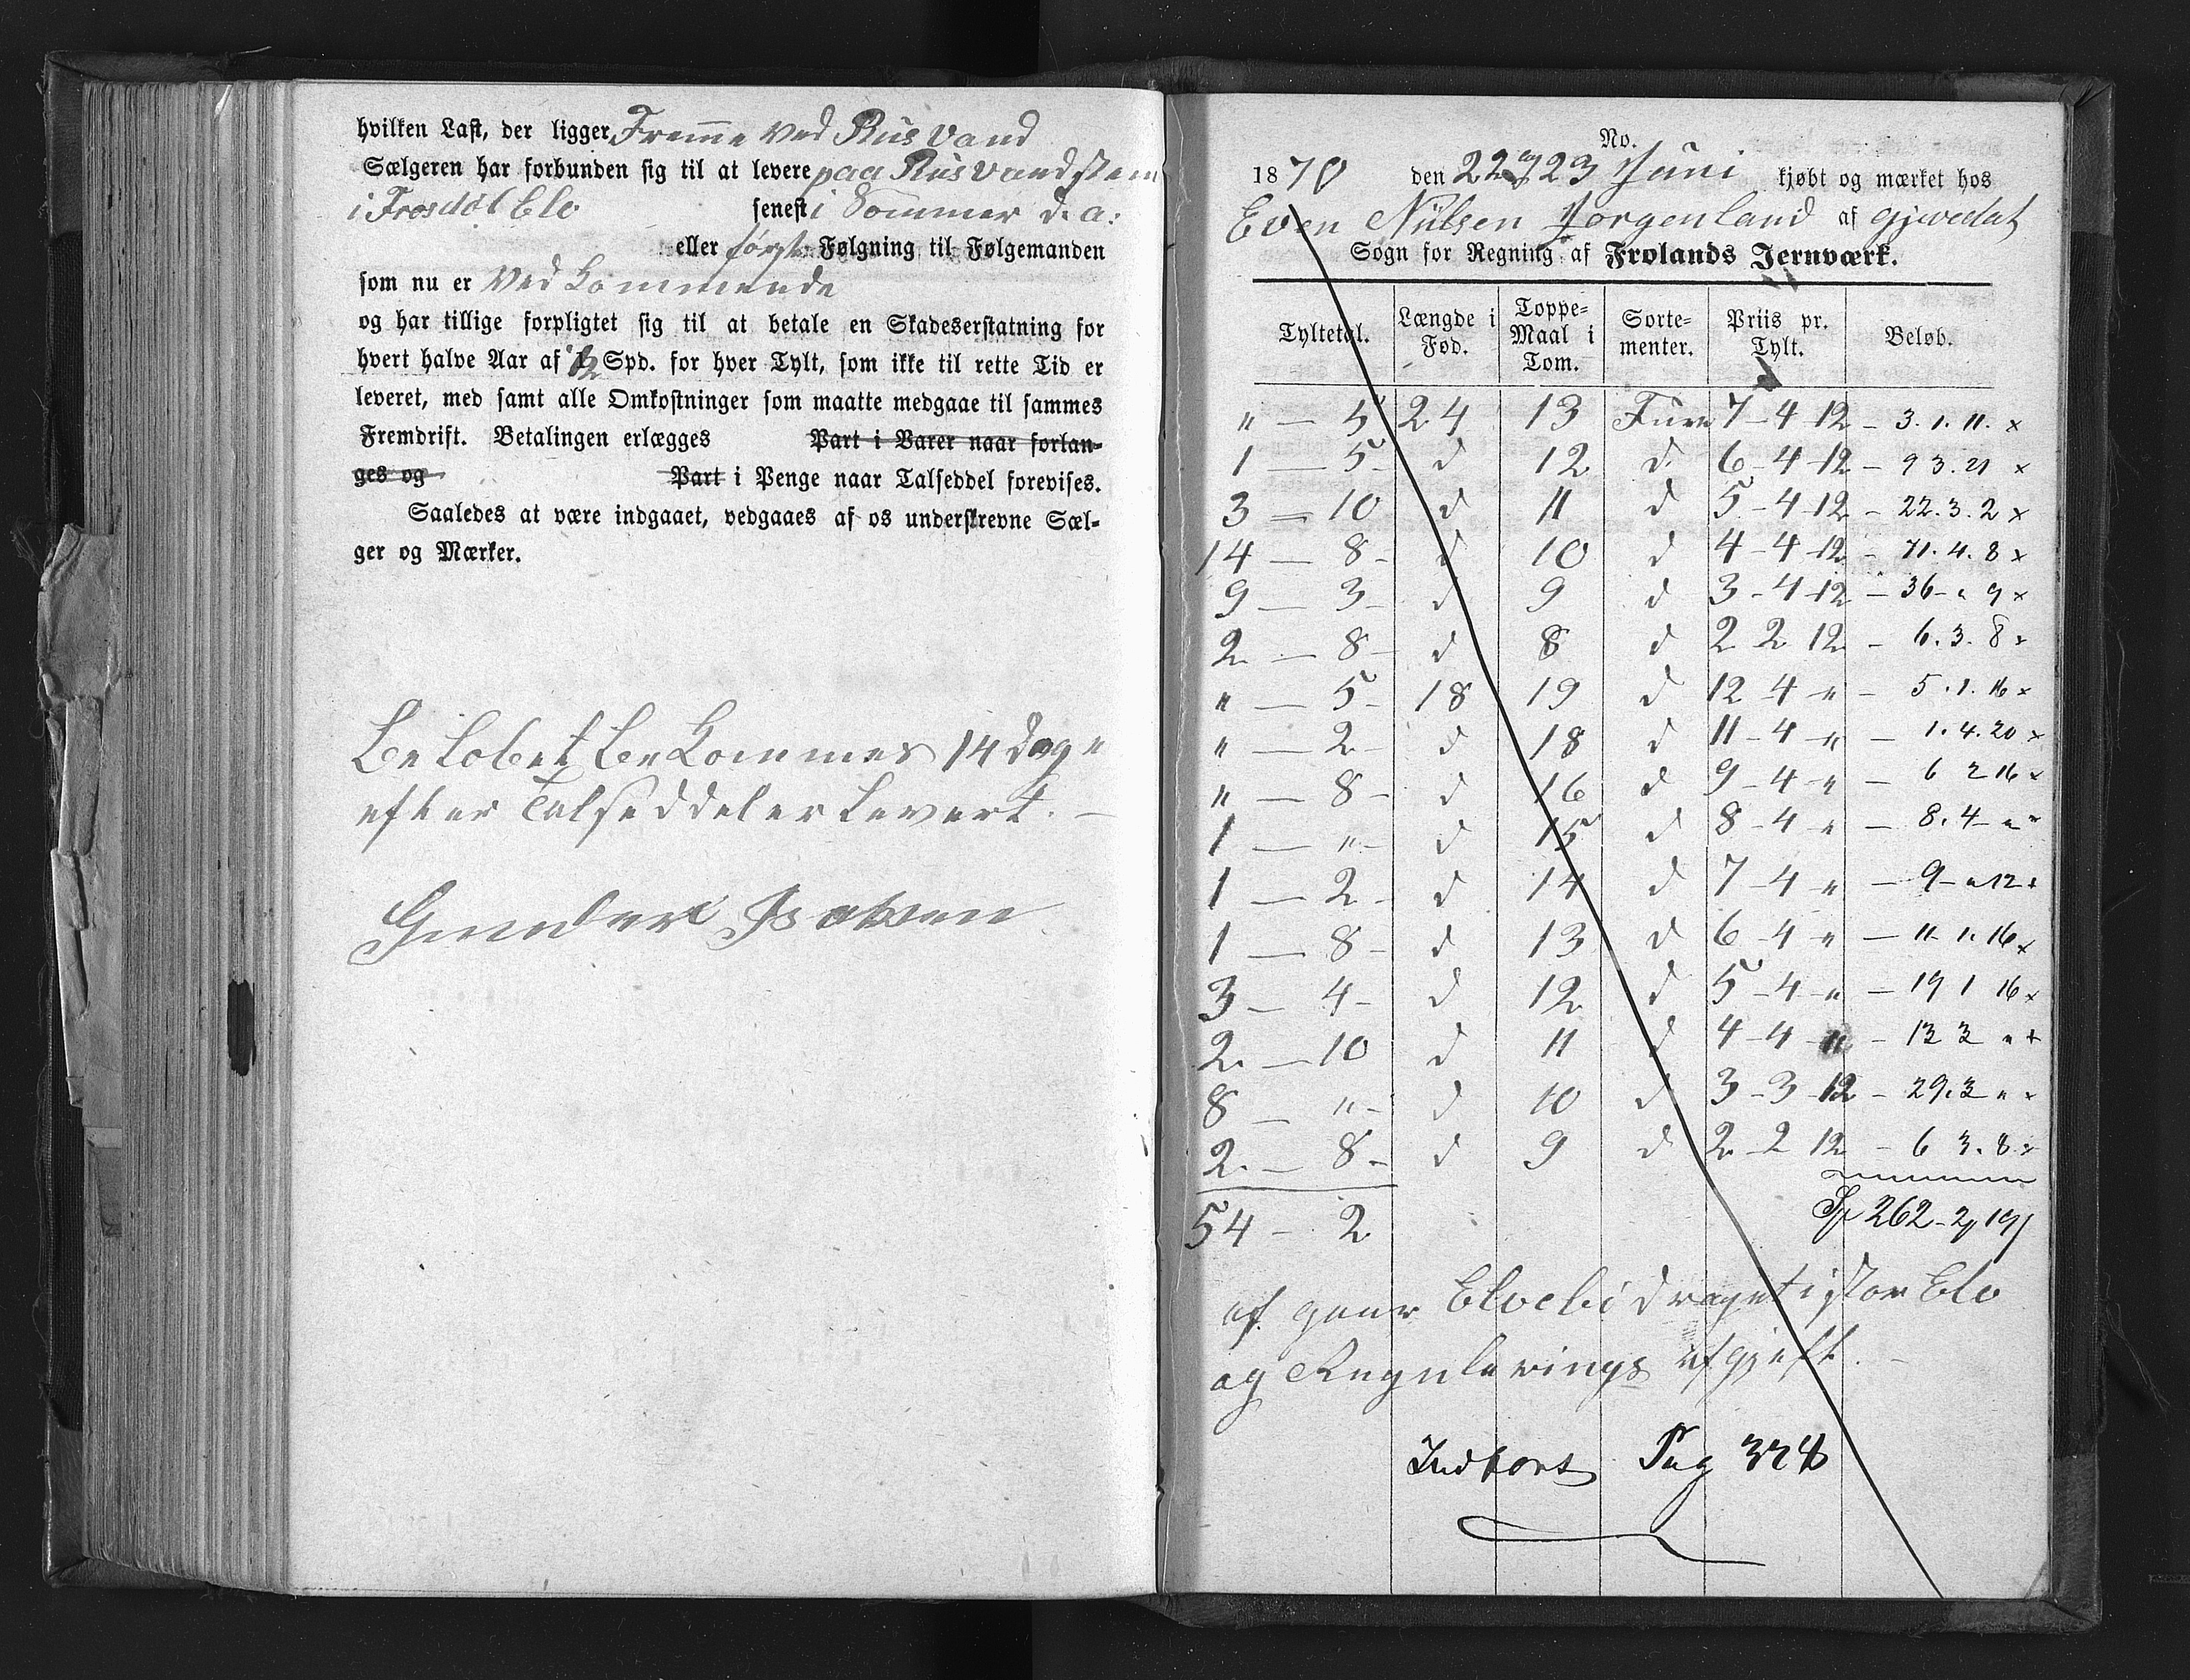 hvilken Last, der ligger Fremme ved Rusvand
Sælgeren har forbunden sig til at levere paa Rusvandstem
i Frosdøl Elv senest i Sommer d. a:
eller første Følgning til Følgemanden
som nu er Vedkommende
og har tillige forpligtet sig til at betale en Skadeserstatning for
hvert halve Aar af ½ Spd. for hver Tylt, som ikke til rette Tid er
leveret, med samt alle Omkostninger som maatte medgaae til sammes
Fremdrift. Betalingen erlægges Part i Varer naar forlan-
ges og Part i Penge naar Talseddel forevises.
Saaledes at være indgaaet, vedgaaes af os underskrevne Sæl-
ger og Mærker.
Belobet bekommes 14 dage
efter Talseddel er levert. —
Gunder Jsaksen
No.
1870 den 22 og 23 Juni kjøbt og mærket hos
Even Nilsen Jorgenland af Gjivedal
Sogn for Regning af Frolands Jernværk.
Tyltetal. Længde i Fød. Toppe-Maal i Tom. Sorte-menter. Priis pr. Tylt. Beløb.
" — 5 24 13 Furu 7-4-12 - 3. 1. 11. x
1 — 5 d 12 d 6-4-12 - 9 3. 21 x
3 — 10 d 11 d 5-4-12 - 22. 3. 2 x
14 — 8 - d 10 d 4-4-12 - 71. 4. 8 x
9 — 3 - d 9 d 3-4-12 - 36 - " 9 x
2 — 8 - d 8 d 2 2 12 - 6. 3. 8 x
" — 5 - 18 19 d 12-4-" - 5. 1. 16 x
" — 2 - d 18 d 11-4-" - 1. 4. 20 x
" — 8 - d 16 d 9-4-" - 6 2 16 x
1 — " - d 15 d 8-4-" - 8. 4 - " x
1 — 2 - d 14 d 7-4-" - 9 - " 12 x
1 — 8 - d 13 d 6-4-" - 11 - 1. 16 x
3 — 4 - d 12 d 5-4-" - 19 1 16 x
2 — 10 d 11 d 4-4-" - 13 3 " x
8 — " - d 10 d 3-3-12 - 29. 3 " x
2 — 8 - d 9 d 2-2 12 - 6 3. 8 x
54 - 2 Sp 262 - 2 " 19
af gaar Elvebidraget i stor Elv
og Regulerings afgjeft. —
Indført Pag 328